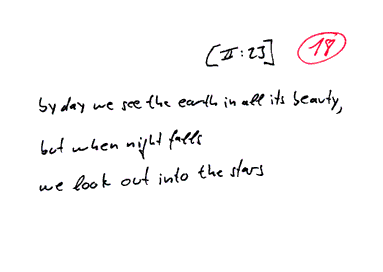 [II:23] 18
by day we see the earth in all its beauty,
but when night falls
we look out into the stars